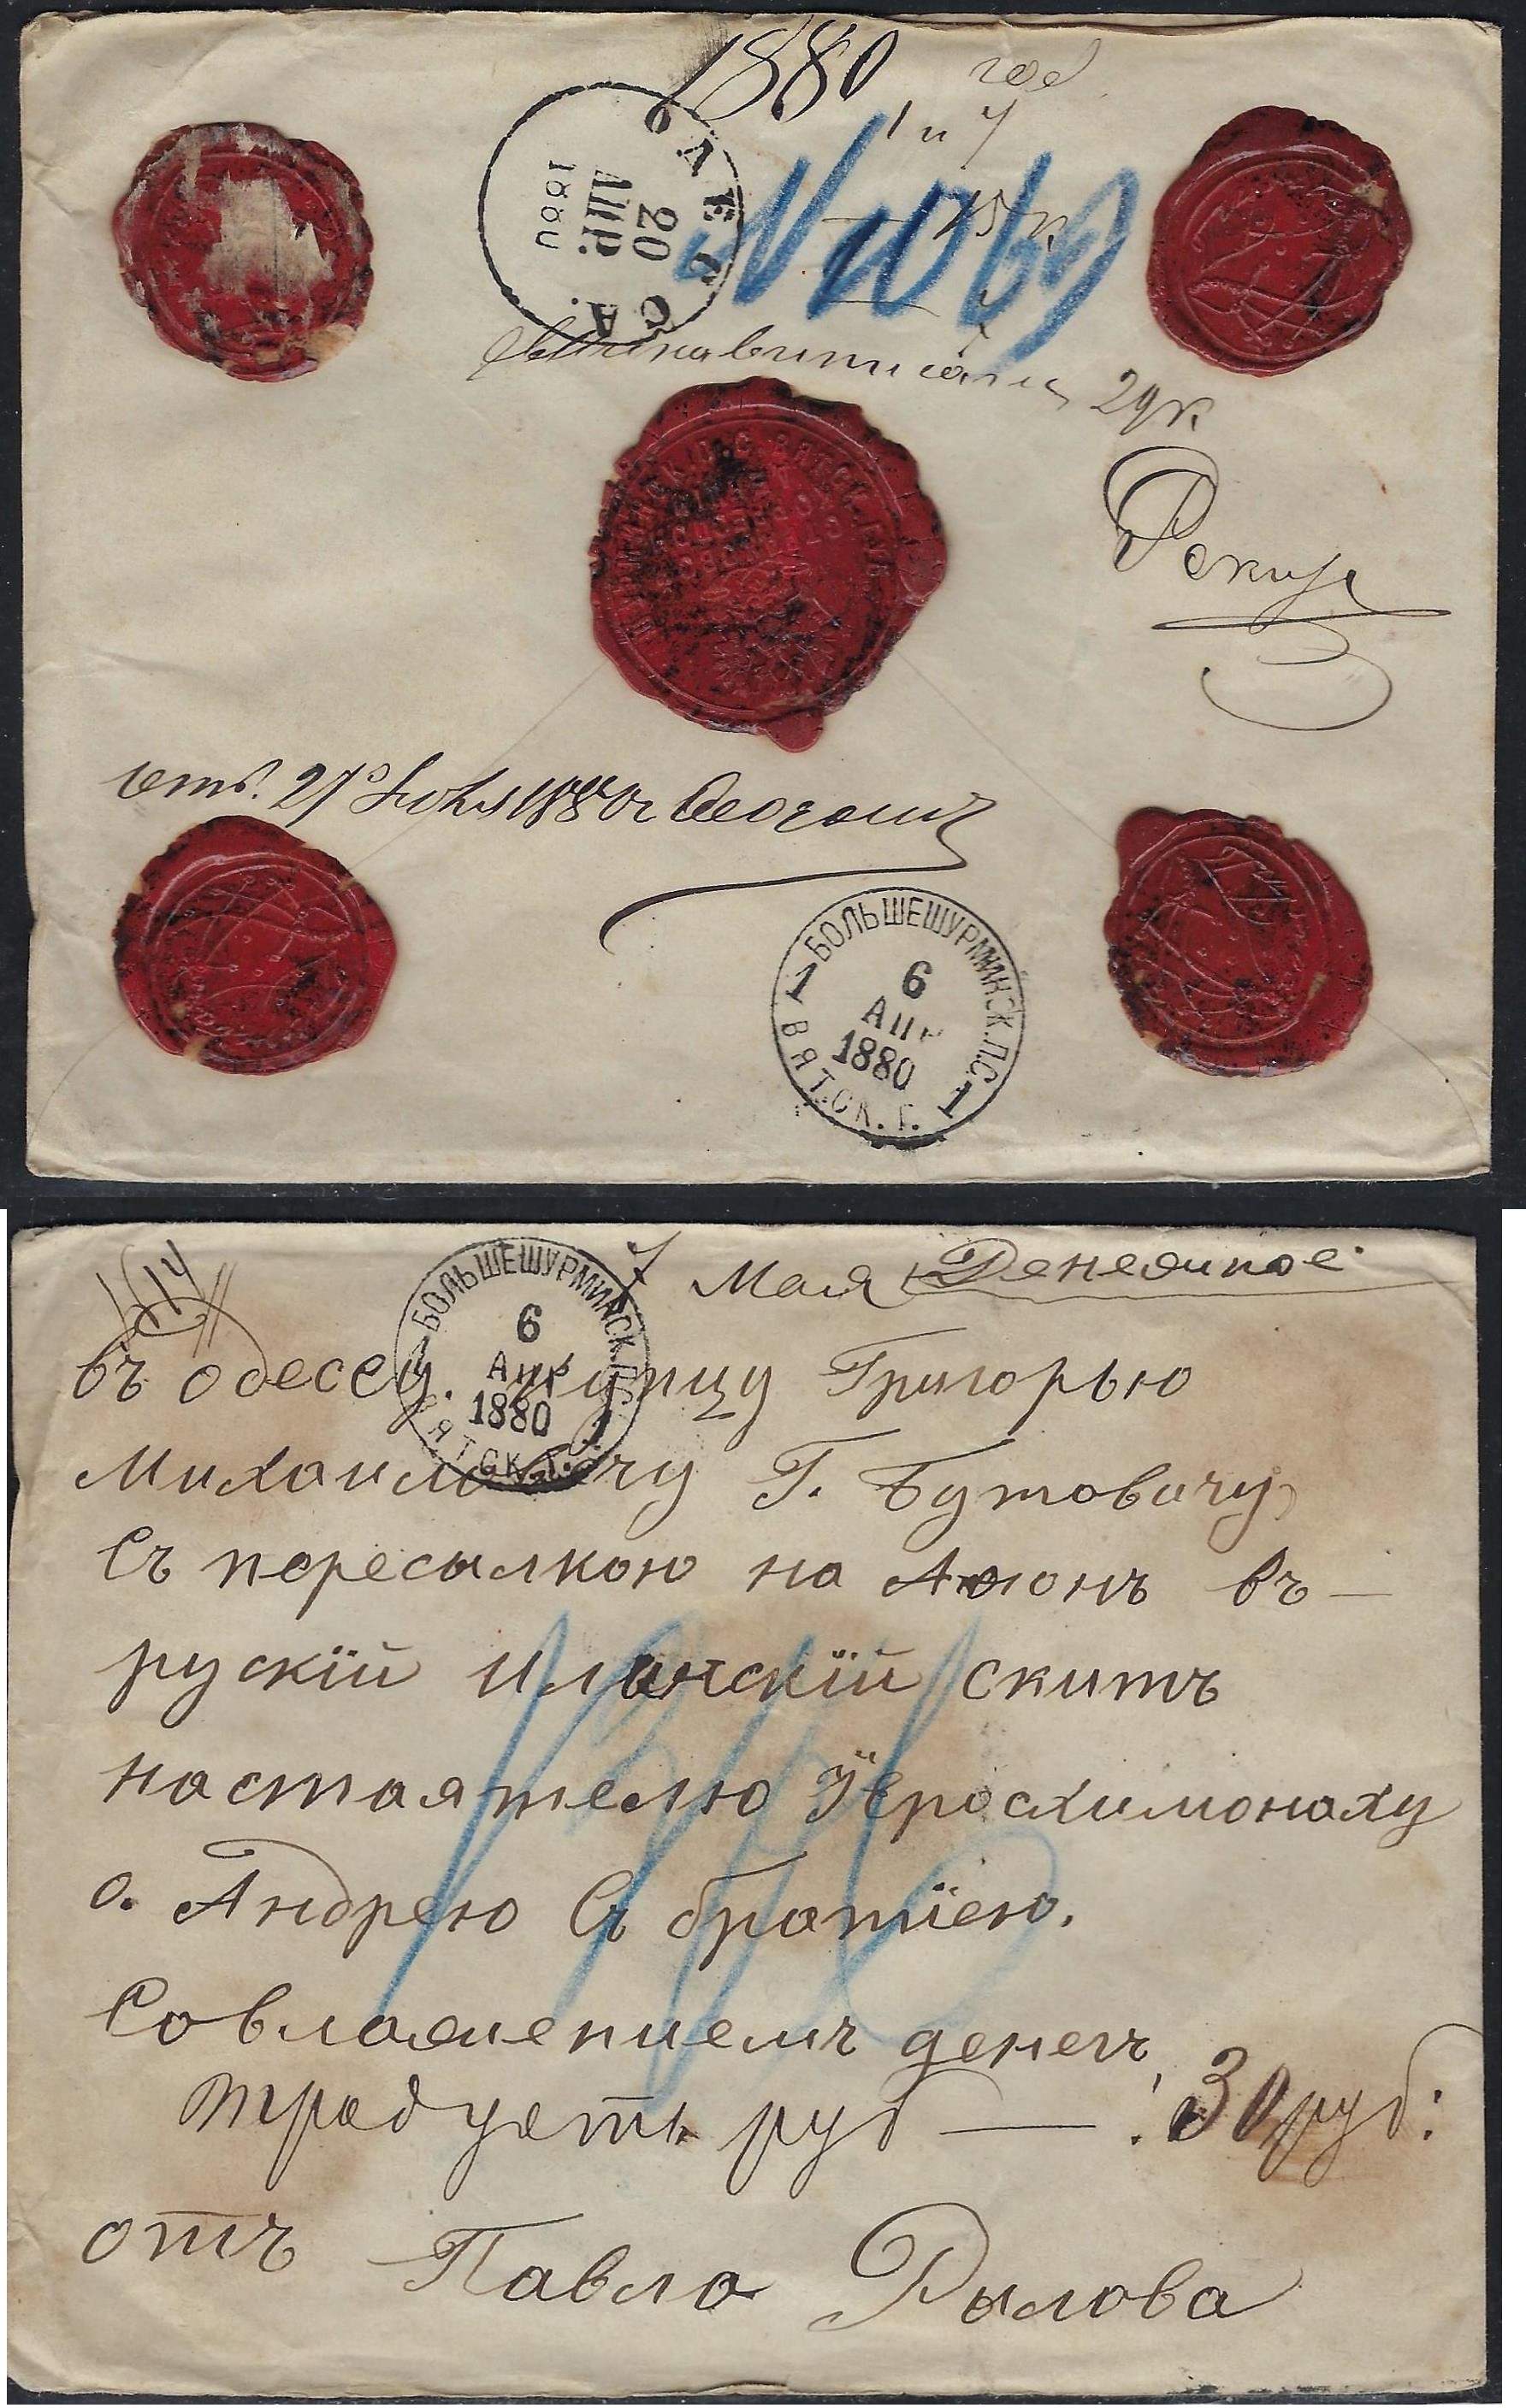 1880 год
1 и 7
ОДЕССА.
20
АПР.
1880
29 к
отв. 27 1880
БОЛЬШЕШУРМИНСК. П. С.
1 1
6
АПР
1880
ВЯТ.СК. Г.
114
7 Мая Денежное
БОЛЬШЕШУРМИНСК. П. С.
6
АПР
1880
1
ВЯТСК. Г.
въ одессу. купцу Григорью
Михаиловичу Г. Бутовичу,
Съ пересылкою на Афонъ въ —
рускїй илинскїй скитъ
настоятелю Їеросхимонаху
о. Андрею Съ братїею.
Совложениемъ денегъ,
тредцеть руб — : 30 руб:
отъ Павла Рылова